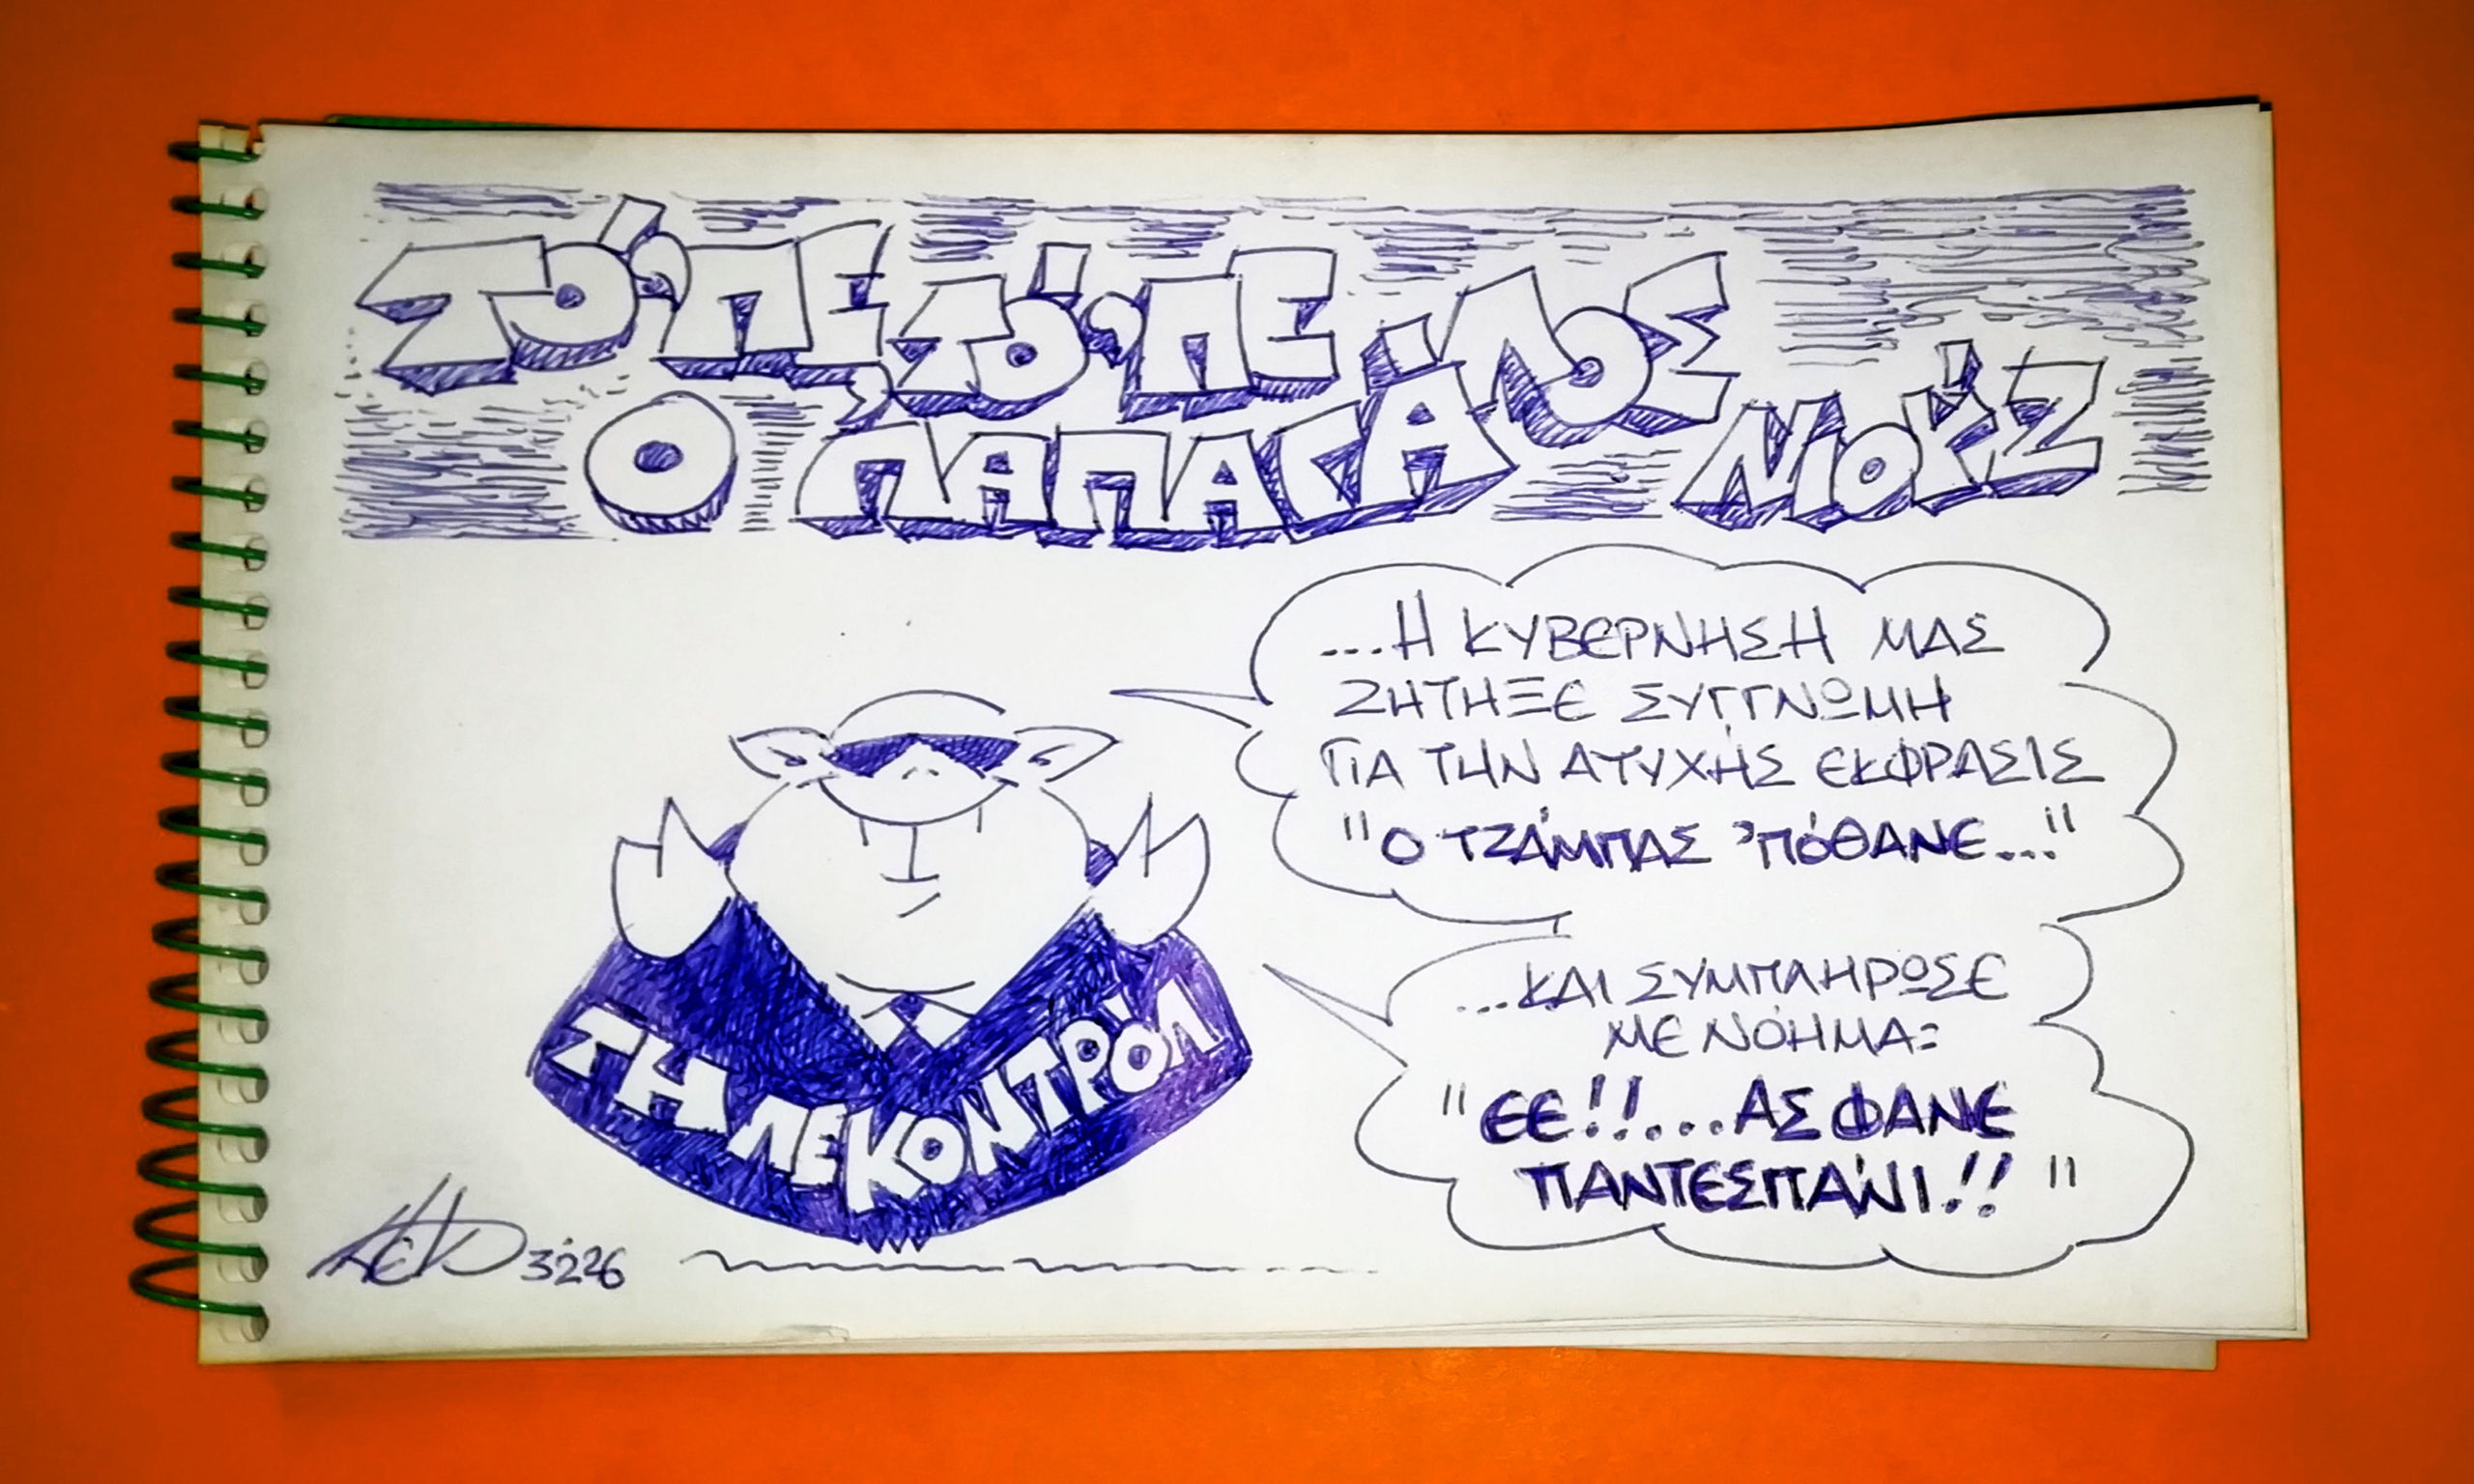 ΤΌ'ΠΕ, ΤΌ'ΠΕ
Ο ΠΑΠΑΓΆΛΟΣ
ΝΙΟΎΖ
...Η ΚΥΒΕΡΝΗΣΗ ΜΑΣ
ΖΗΤΗΞΕ ΣΥΓΓΝΩΜΗ
ΓΙΑ ΤΗΝ ΑΤΥΧΉΣ ΕΚΦΡΑΣΙΣ
"Ο ΤΖΆΜΠΑΣ 'ΠΌΘΑΝΕ..."
...ΚΑΙ ΣΥΜΠΛΗΡΩΣΕ
ΜΕ ΝΌΗΜΑ:
"ΕΕ!!...ΑΣ ΦΑΝΕ
ΠΑΝΤΕΣΠΆΝΙ!!"
ΤΗΛΕΚΟΝΤΡΌΛ
3226